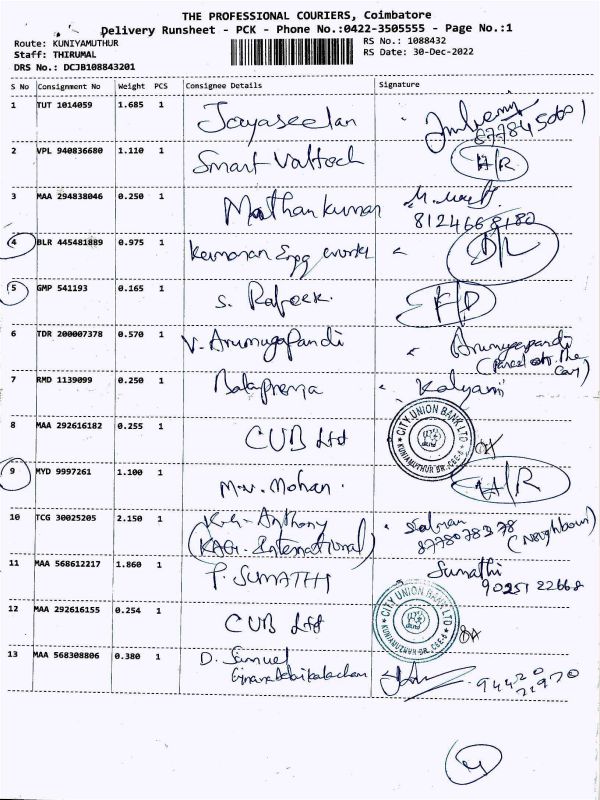 THE PROFESSIONAL COURIERS, Coimbatore
Delivery Runsheet - PCK - Phone No.:0422-3505555 - Page No.:1
Route: KUNIYAMUTHUR
RS No.: 1088432
Staff: THIRUMAL
RS Date: 30-Dec-2022
DRS No.: DCJB108843201
S No Consignment No Weight PCS Consignee Details Signature
1 TUT 1014059 1.685 1 Jayaseelan
2 VPL 940836680 1.110 1 Smart Valtech H/R
3 MAA 294838046 0.250 1 Mathankumar
8124668180
4 BLR 445481889 0.975 1 Kumaran Engg works D/L
5 GMP 541193 0.165 1 S. Rafeek F/D
6 TDR 200007378 0.570 1 V. Arumugapandi Arumugapandi
7 RMD 1139099 0.250 1 Balaprema Kalyani
8 MAA 292616182 0.255 1 CUB Ltd CITY UNION BANK LTD
KUNIAMUTHUR BR., CBE-8
9 MYD 9997261 1.100 1 M.V. Mohan. H/R
10 TCG 30025205 2.150 1 K.G. Anthony
(KAG. International) 8778078378 (Neighbour)
11 MAA 568612217 1.860 1 P. SUMATHI Sumathi
90251 22668
12 MAA 292616155 0.254 1 CUB Ltd CITY UNION BANK LTD.
KUNIAMUTHUR BR., CBE-8
13 MAA 568308806 0.380 1 D. Samuel